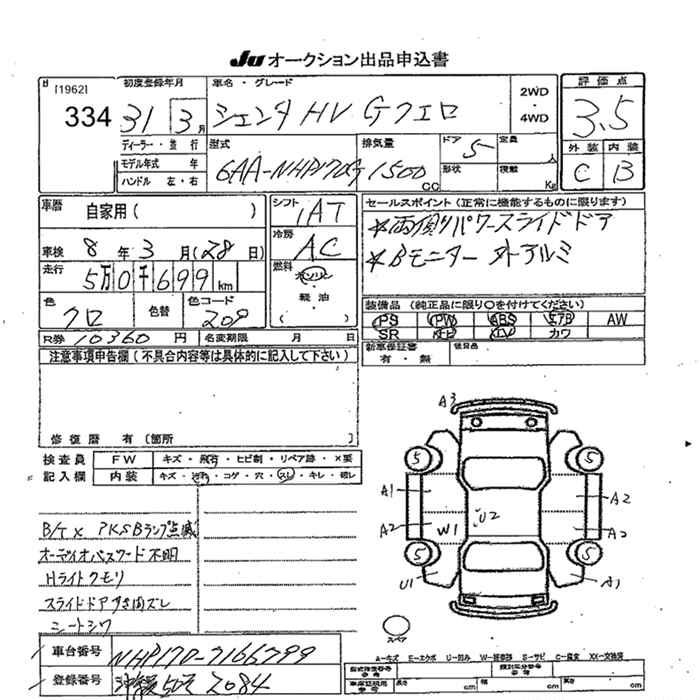 Ju オークション出品申込書
[1962] 初度登録年月 車名・グレード 2WD・4WD 評価点
334 31 3月 シエンタ HV Gクエロ 3.5
ディーラー・並行 型式 排気量 ドア 5 定員 人 外装 内装
モデル年式 年 6AA-NHP170G 1500cc 形状 積載 Kg C B
ハンドル 左・右
車歴 自家用( ) シフト IAT セールスポイント(正常に機能するものに限ります)
車検 8年3月(28日) 冷房 AC *両側パワースライドドア
走行 5万0千699km 燃料 ガソリン *Bモニター 外アルミ
軽油 ( )
色 クロ 色替 色コード 209 装備品(純正品に限り○を付けてください)
PS PW ABS エアB AW
SR ナビ TV カワ
R券 10360円 名変期限 月 日 新車保証書 有・無 後日品
注意事項申告欄(不具合内容等は具体的に記入して下さい)
修復歴 有(箇所
検査員 FW キズ・飛石・ヒビ割・リペア跡・×要
記入欄 内装 キズ・汚れ・コゲ・穴・スレ・キレ・破レ
B/T× PKSBランプ点滅
オーディオパスワード不明
Hライトクモリ
スライドドアすき間ズレ
シートシワ
A3
5 5
A1 A2
A2 W1 U2 A2
5 5
U1 A1
スペア
A-キズ E-エクボ U-凹み W-補修跡 S-サビ C-腐食 XX-交換済
車台番号 NHP170-7166799
登録番号 2084
型式指定番号 参考 類別区分番号 参考
車庫証明用 参考 長さ cm 幅 cm 高さ cm